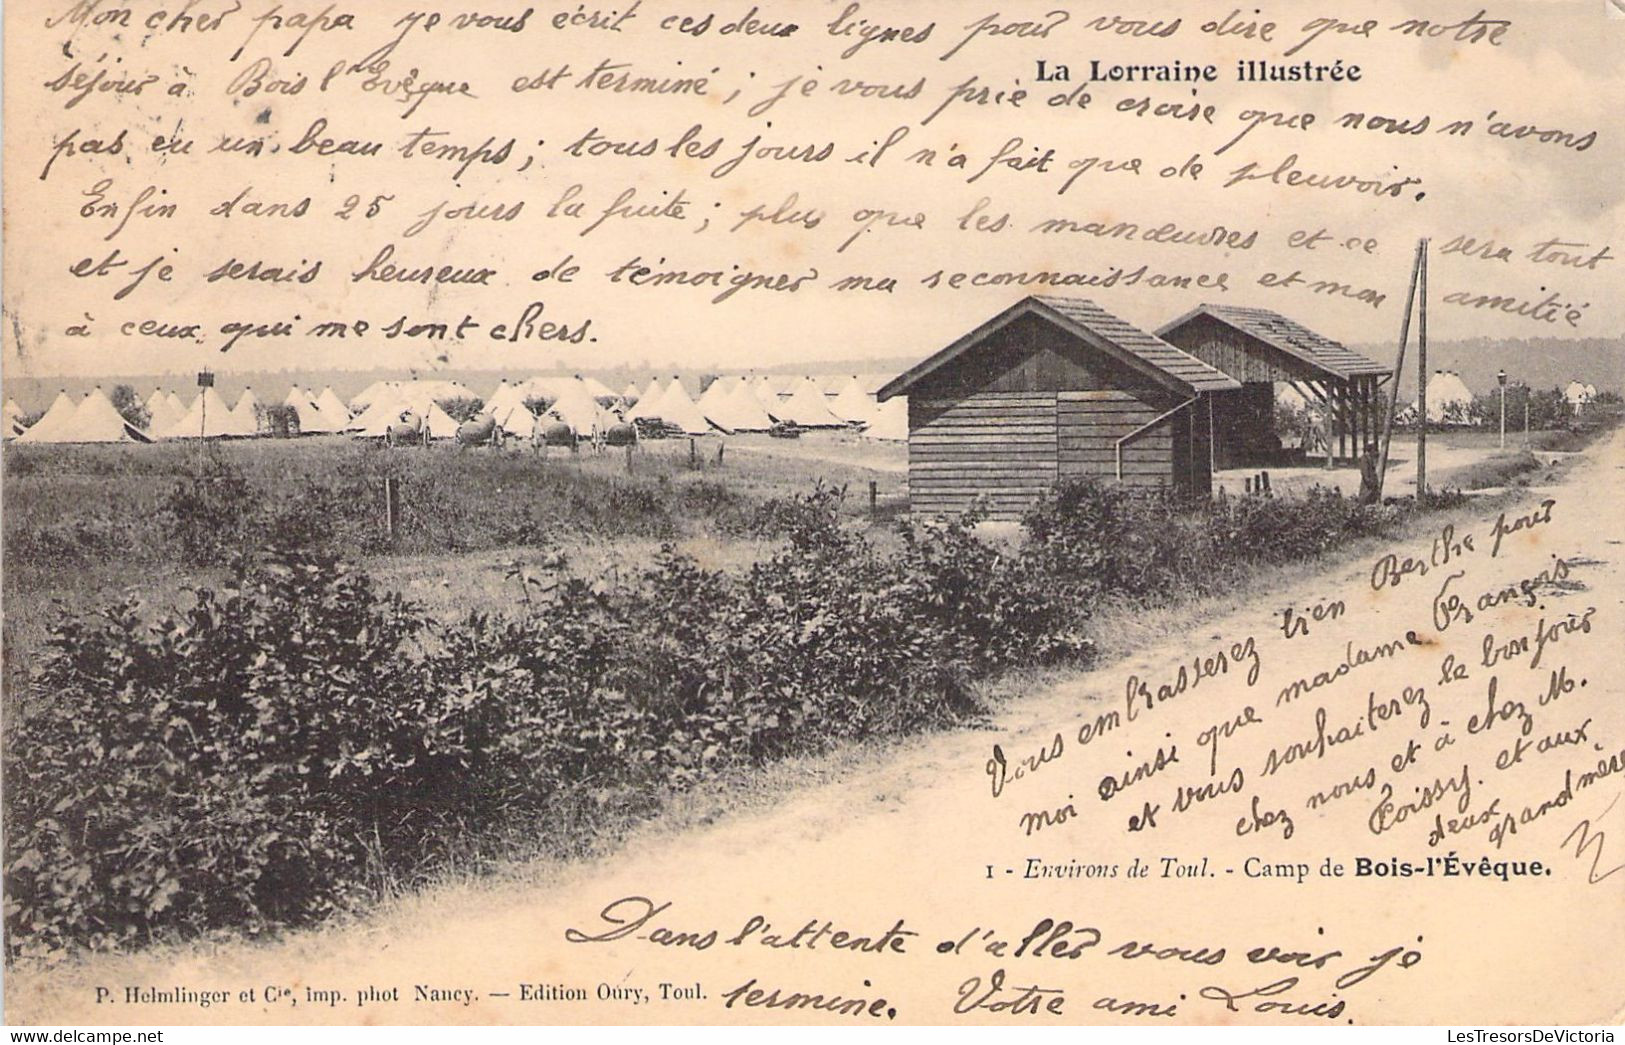 Mon cher papa je vous écrit ces deux lignes pour vous dire que notre
La Lorraine illustrée
séjour à Bois l'Evêque est terminé ; je vous prie de croire que nous n'avons
pas eu un beau temps ; tous les jours il n'a fait que de pleuvoir.
Enfin dans 25 jours la fuite ; plus que les manœuvres et ce sera tout
et je serais heureux de témoigner ma reconnaissance et mon amitié
à ceux qui me sont chers.
Vous embrasserez bien Berthe pour
moi ainsi que madame François
et vous souhaiterez le bonjour
chez nous et à chez M.
Poissy. et aux
deux
grandmère
1 - Environs de Toul. - Camp de Bois-l'Évêque.
Dans l'attente d'aller vous voir je
P. Helmlinger et Cie, imp. phot Nancy. — Edition Oury, Toul.
termine. Votre ami Louis.
LesTresorsDeVictoria